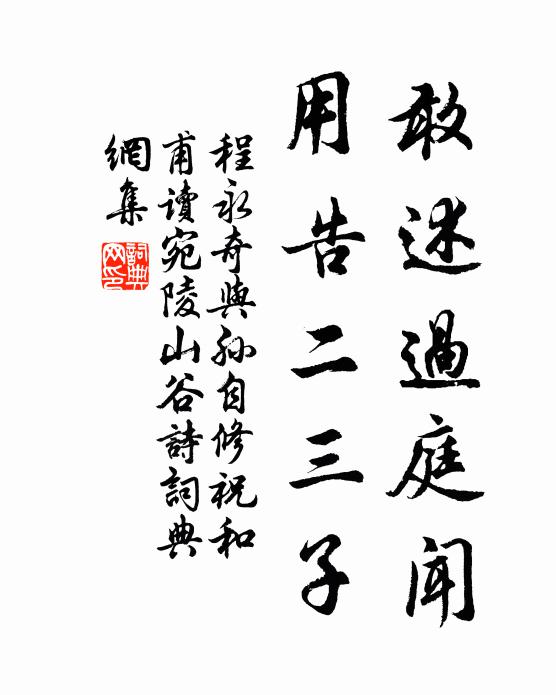 敢述過庭聞
用告二三子
程永奇與孫自修祝和
甫讀宛陵山谷詩詞典
網集
詞典
网印